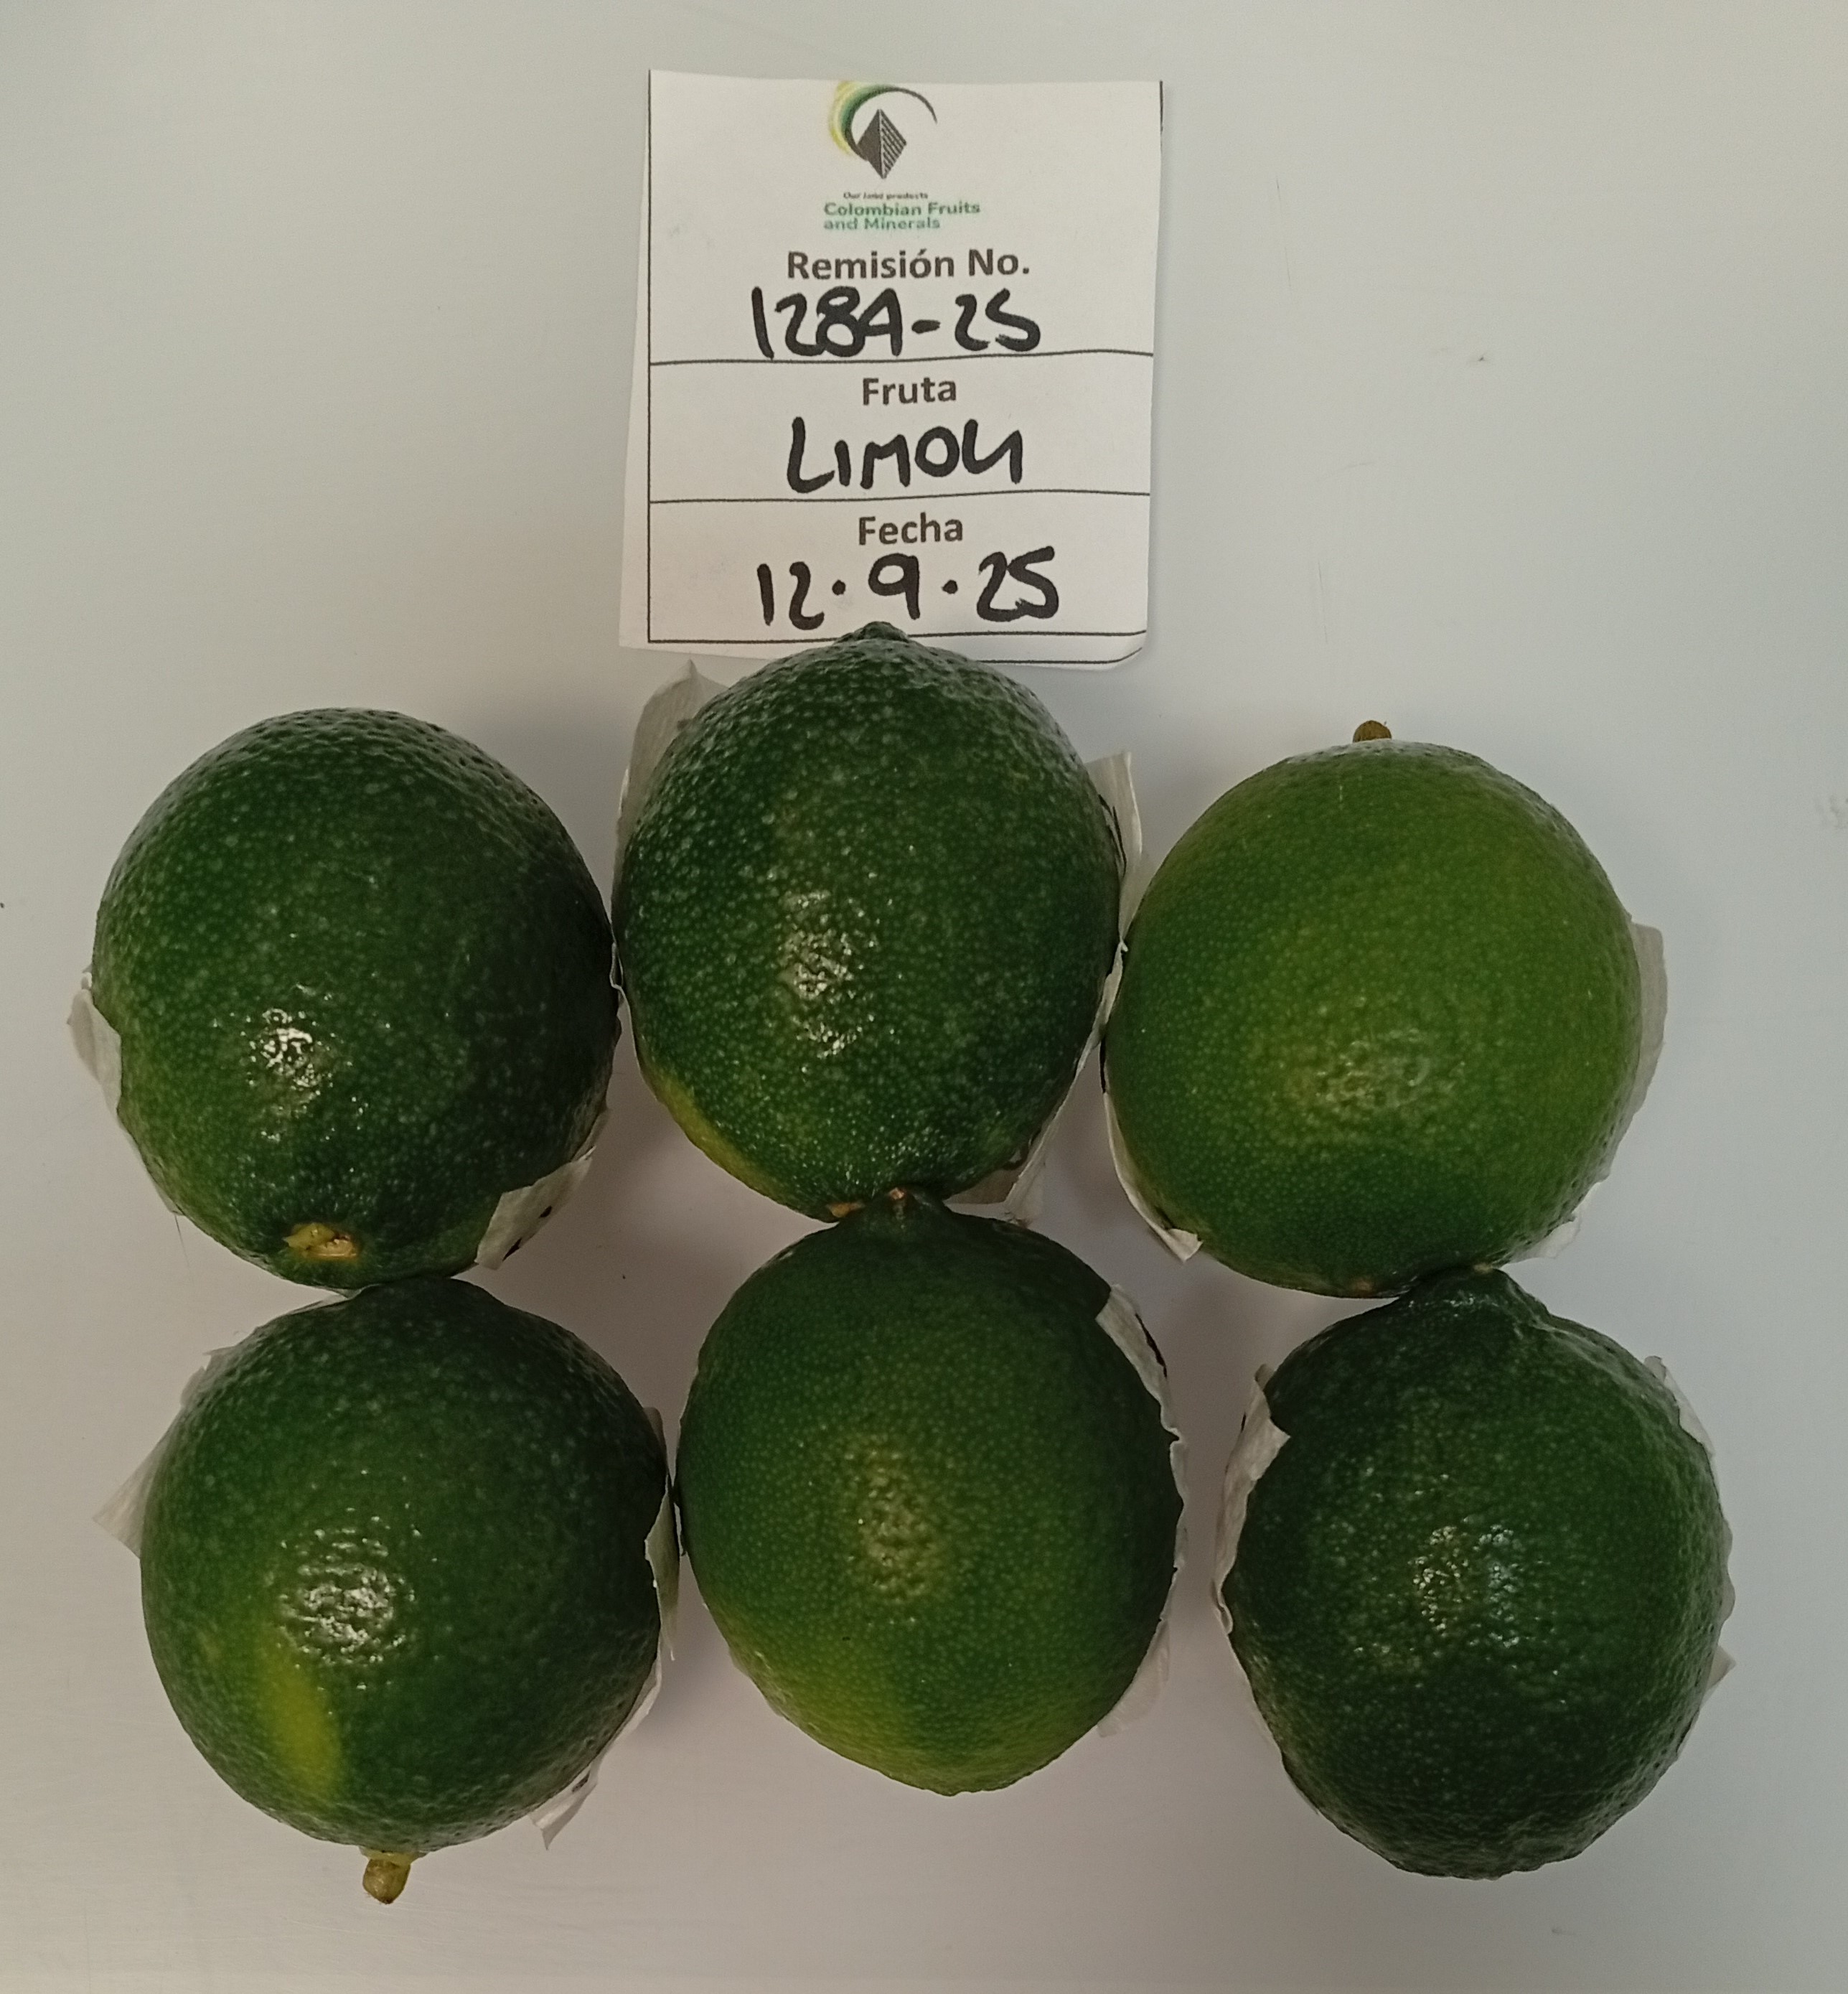 Our land products
Colombian Fruits
and Minerals
Remisión No.
128A-25
Fruta
LIMON
Fecha
12.9.25